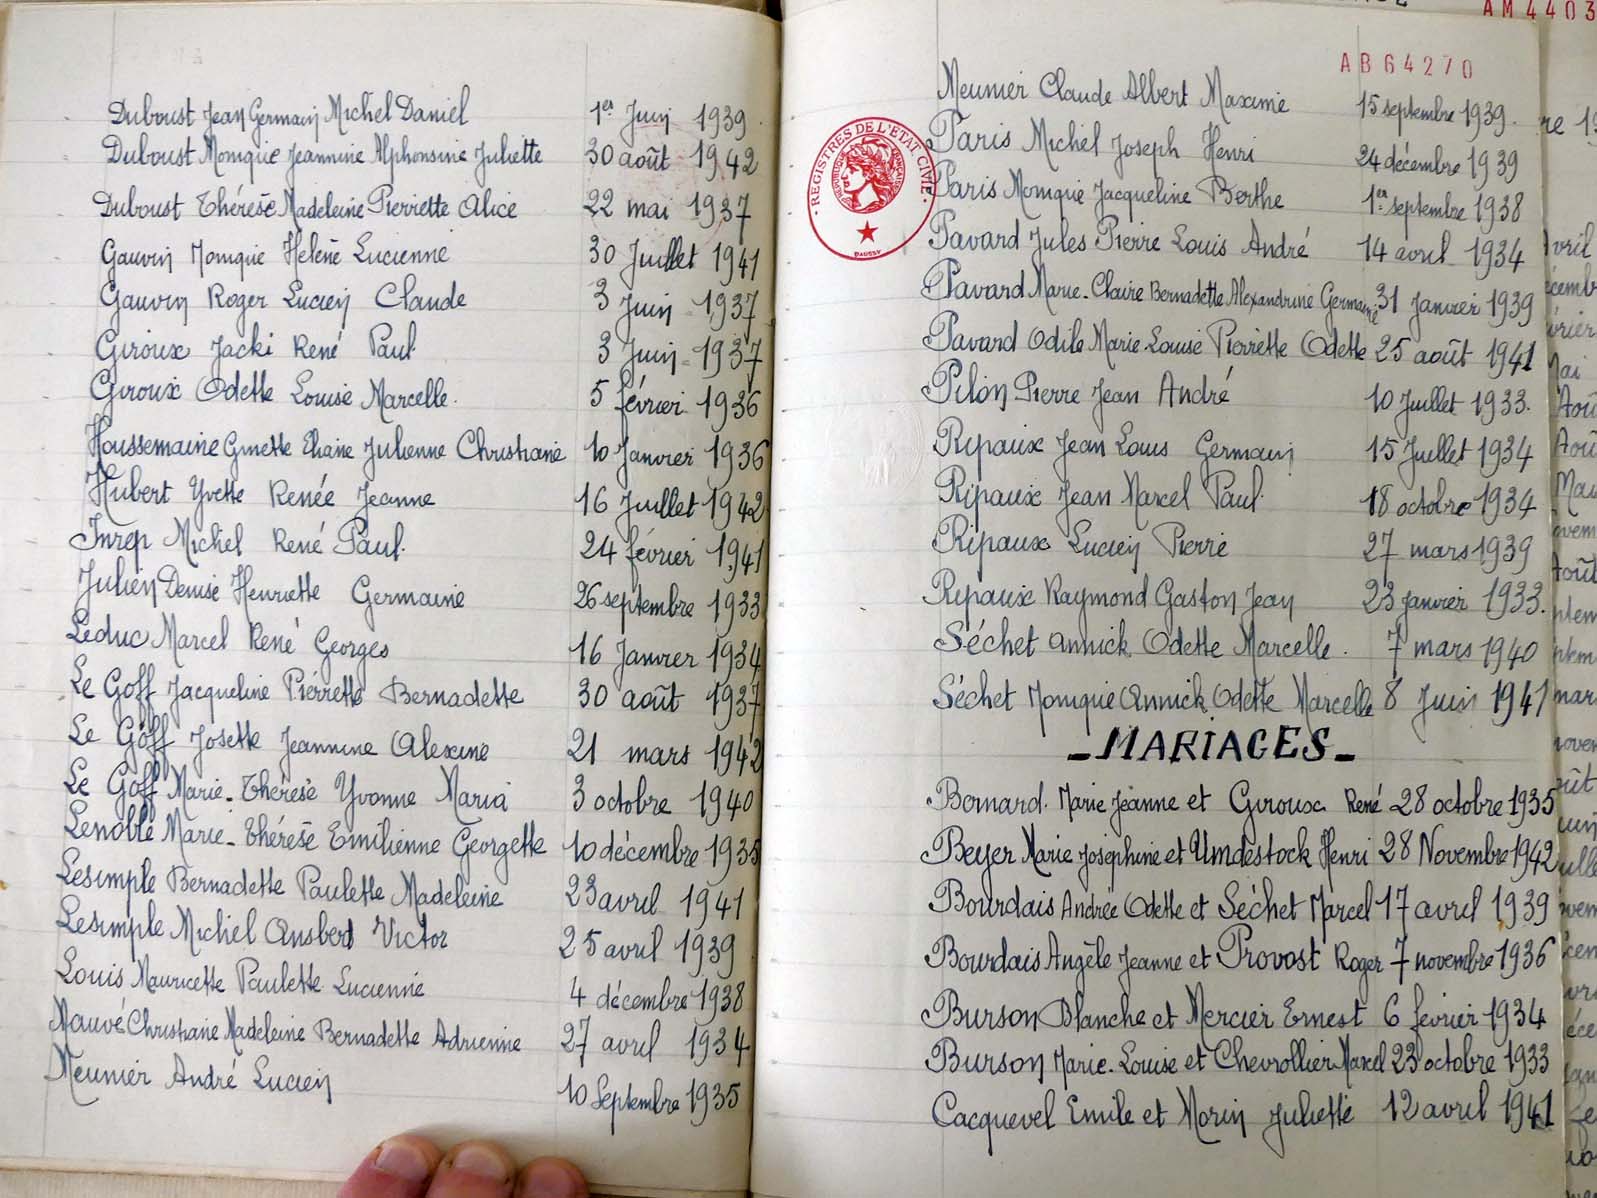 Duboust Jean Germain Michel Daniel 1er Juin 1939.
Duboust Monique Jeannine Alphonsine Juliette 30 août 1942
Duboust Thérèse Madeleine Pierrette Alice 22 mai 1937
Gauvin Monique Hélène Lucienne 30 Juillet 1941
Gauvin Roger Lucien Claude 3 Juin 1937
Giroux Jacki René Paul 3 Juin 1937
Giroux Odette Louise Marcelle. 5 février 1936
Houssemaine Ginette Eliane Julienne Christiane 10 Janvier 1936
Hubert Yvette Renée Jeanne 16 Juillet 1942
Inrep Michel René Paul. 24 février 1941
Julien Denise Henriette Germaine 26 septembre 1933
Leduc Marcel René Georges 16 Janvier 1934
Le Goff Jacqueline Pierrette Bernadette 30 août 1937
Le Goff Josette Jeannine Alexine 21 mars 1942
Le Goff Marie-Thérèse Yvonne Maria 3 octobre 1940
Lenoble Marie-Thérèse Emilienne Georgette 10 décembre 1935
Lesimple Bernadette Paulette Madeleine 23 avril 1941
Lesimple Michel Ansberd Victor 25 avril 1939
Louis Mauricette Paulette Lucienne 4 décembre 1938
Mauvé Christiane Madeleine Bernadette Adrienne 27 avril 1934
Meunier André Lucien 10 Septembre 1935
AM4403
AB64270
Meunier Claude Albert Maxime 15 septembre 1939.
REGISTRES DE L'ETAT CIVIL
REPUBLIQUE FRANÇAISE
Paris Michel Joseph Henri 24 décembre 1939
Paris Monique Jacqueline Berthe 1er septembre 1938
Pavard Jules Pierre Louis André 14 avril 1934
Pavard Marie-Claire Bernadette Alexandrine Germaine 31 Janvier 1939
Pavard Odile Marie-Louise Pierrette Odette 25 août 1941
Pilon Pierre Jean André 10 Juillet 1933.
Ripaux Jean Louis Germain 15 Juillet 1934
Ripaux Jean Marcel Paul. 18 octobre 1934
Ripaux Lucien Pierre 27 mars 1939
Ripaux Raymond Gaston Jean 23 janvier 1933.
Séchet Annick Odette Marcelle. 7 mars 1940
Séchet Monique Annick Odette Marcelle 8 Juin 1941
- MARIAGES -
Bernard Marie Jeanne et Giroux René 28 octobre 1935
Beyer Marie Joséphine et Umdestock Henri 28 Novembre 1942
Bourdais Andrée Odette et Séchet Marcel 17 avril 1939
Bourdais Angèle Jeanne et Provost Roger 7 novembre 1936
Burson Blanche et Mercier Ernest 6 février 1934
Burson Marie-Louise et Chevrollier Marcel 23 octobre 1933
Cacquevel Emile et Morin Juliette 12 avril 1941